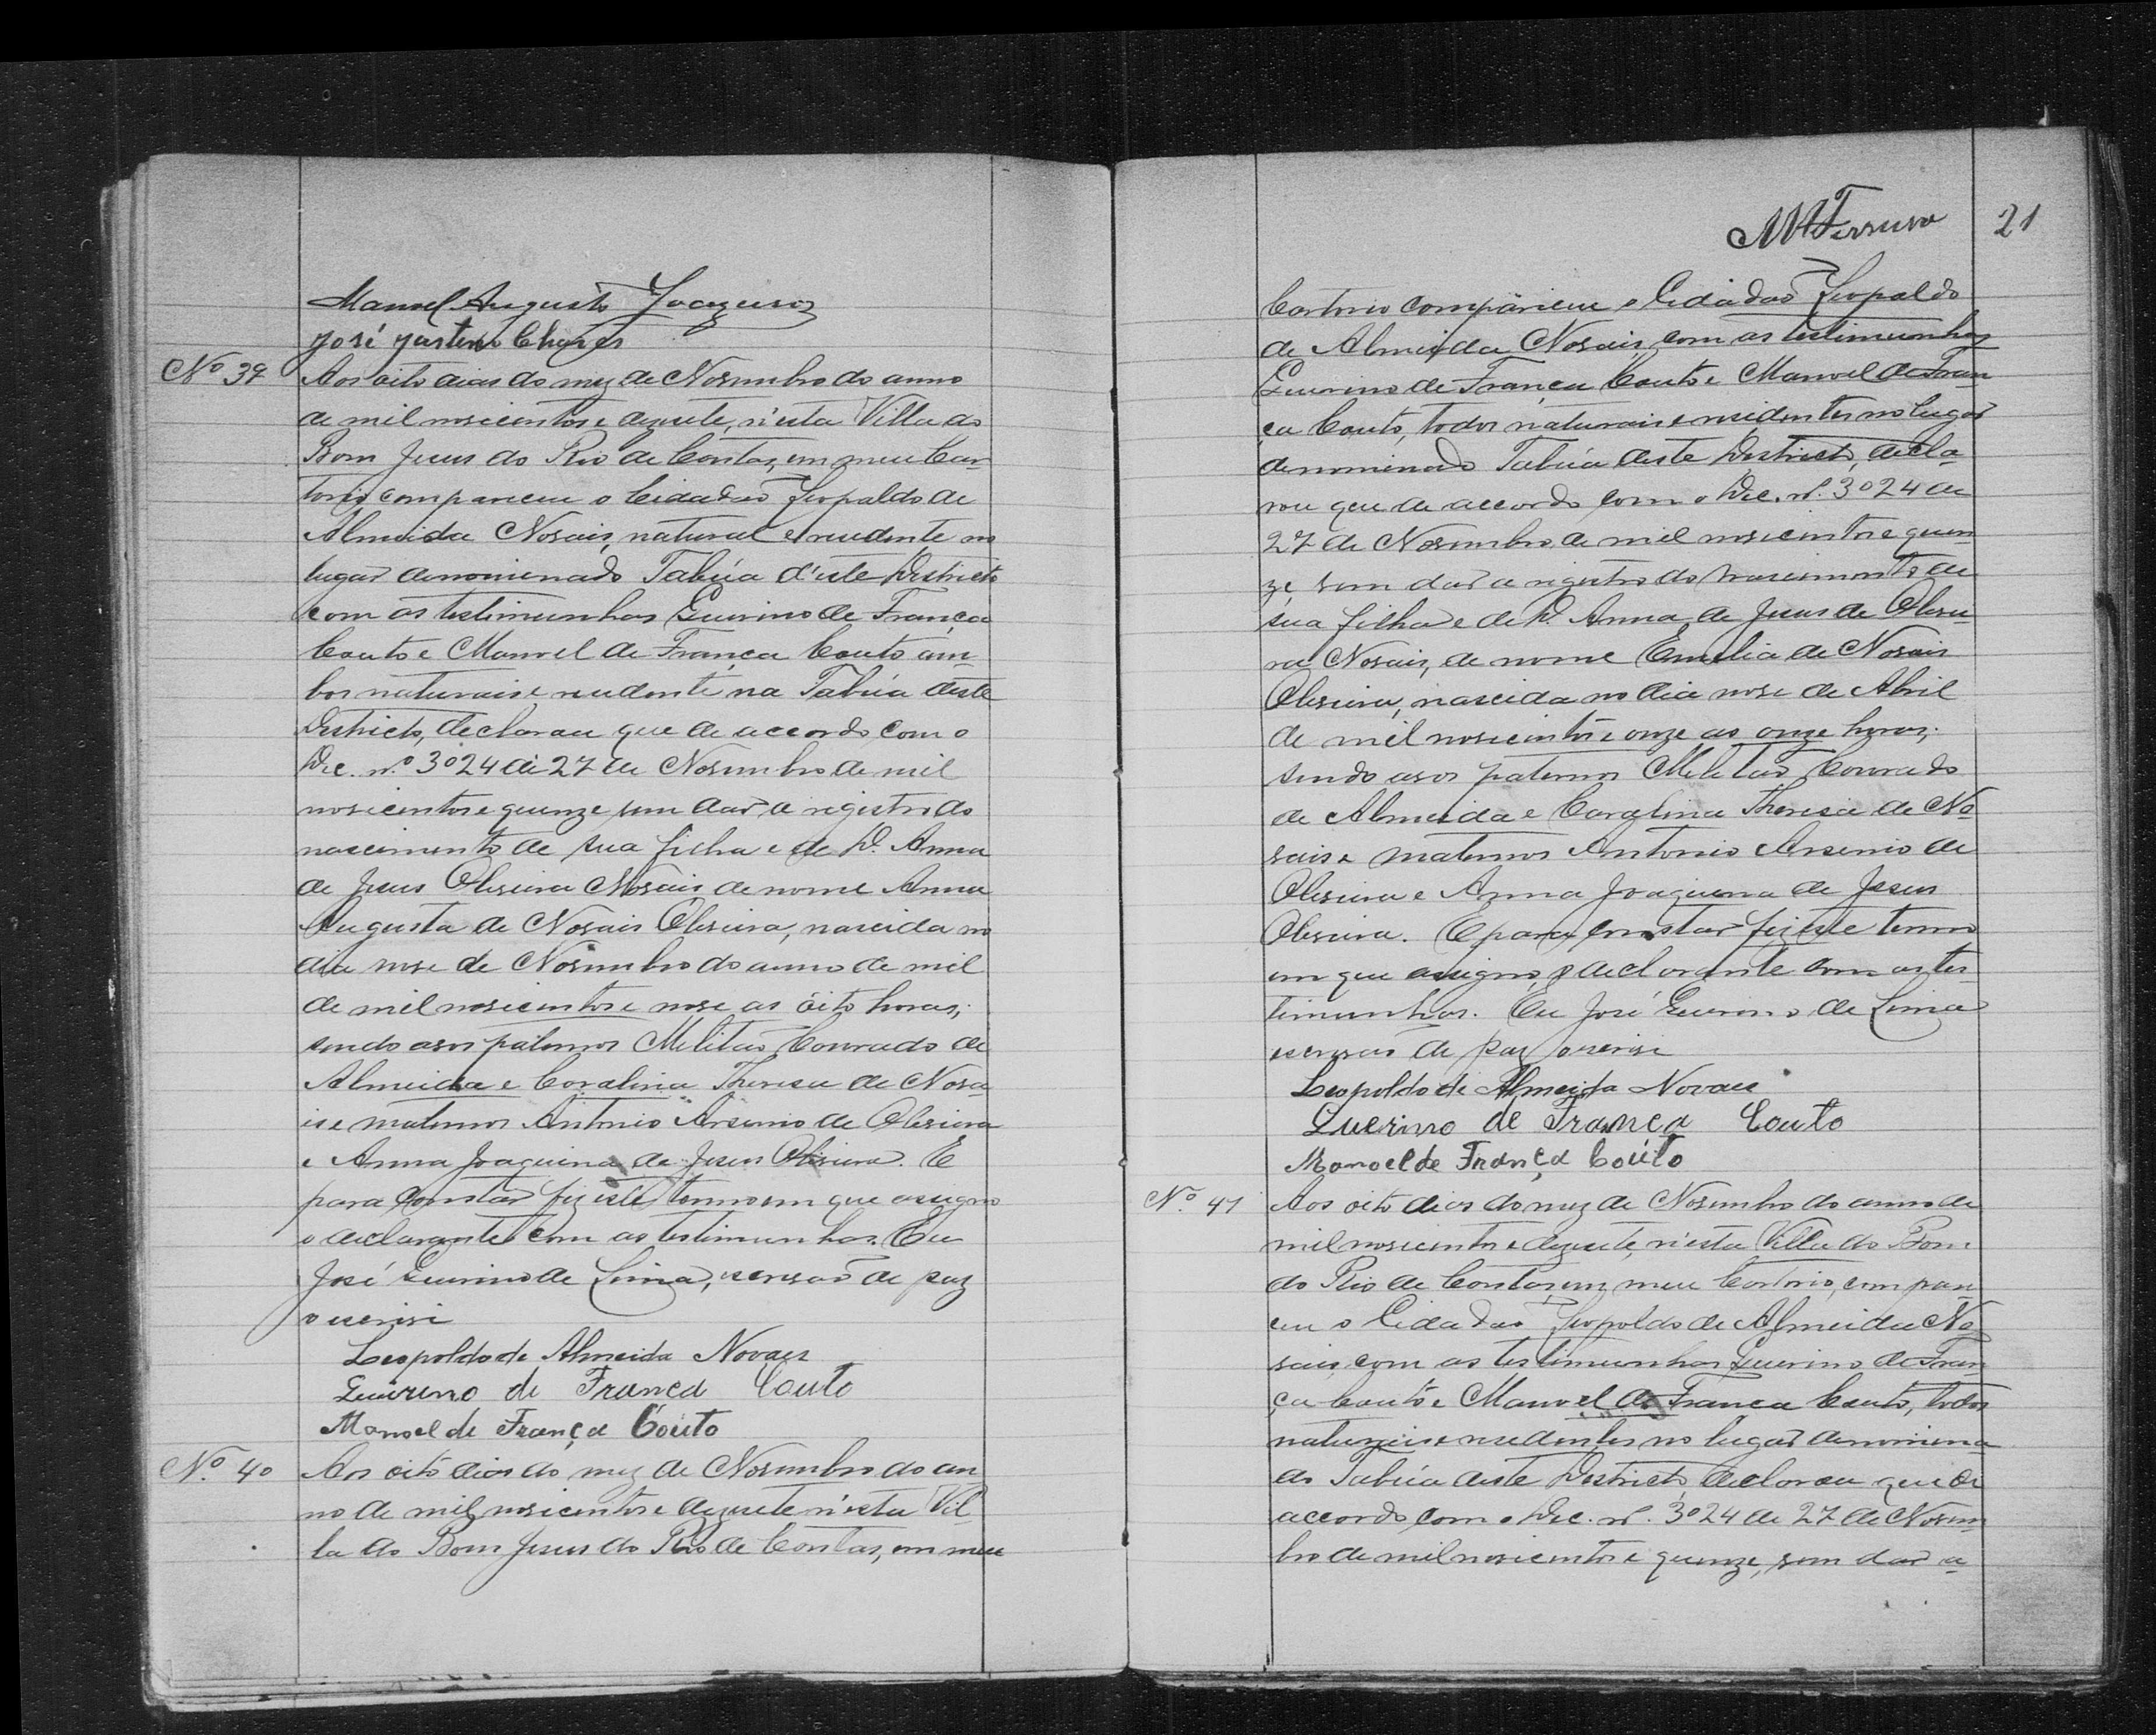 Manoel Augusto
José Justino Chaves
Nº 39
Aos oito dias do mez de Novembro do anno
de mil novicentos e dezesete, n'esta Villa do
Bom Jesus do Rio de Contas, em meu Car
torio compareceu o Cidadão Leopoldo de
Almeida Novais, natural e residente no
lugar denominado Tabúa d'este Districto
com as testimunhas Quirino de França
Couto e Manoel de França Couto am-
bos naturais e residente na Tabúa deste
Districto, declarou que de accordo com o
Dec. nº 3024 de 27 de Novembro de mil
novicentos e quinze vem dar a registro do
nascimento de sua filha e de D. Anna
de Jesus Oliveira Novais de nome Anna
Augusta de Novais Oliveira, nascida no
dia nove de Novembro do anno de mil
de mil novicentos e nove as oito horas;
sendo avos paternos Militão Conrado de
Almeida e Carolina Theresa de Nova
is e maternos Antonio Arsenio de Oliveira
e Anna Joaquina de Jesus Oliveira. E
para constar fiz este termo em que assigno
o declarante com as testimunhas. Eu
José Quirino de Lima, escrivão de paz
o escrivi
Leopoldo de Almeida Novaes
Quirino de França Couto
Manoel de França Couto
Nº 40
Aos oito dias do mez de Novembro do an
no de mil novicentos e dezesete n'esta Vil
la do Bom Jesus do Rio de Contas, em meu
21
Cartorio compareceu o Cidadão Leopoldo
de Almeida Novais, com as testimunhas
Quirino de França Couto e Manoel de Fran
ça Couto, todos naturais e residentes no lugar
denominado Tabúa deste Districto, decla-
rou que de accordo com o Dec. nº. 3024 de
27 de Novembro de mil novicentos e quin
ze, vem dar a registro do nascimento de
sua filha e de D. Anna de Jesus de Olivei-
ra Novais, de nome Emilia de Novais
Oliveira, nascida no dia nove de Abril
de mil novicentos e onze as onze horas;
sendo avos paternos Militão Conrado
de Almeida e Carolina Theresa de No
vais e maternos Antonio Arsenio de
Oliveira e Anna Joaquina de Jesus
Oliveira. E para constar fiz este termo
em que assigno o declarante com as tes
timunhas. Eu José Quirino de Lima
escrivão de paz o escrivi
Leopoldo de Almeida Novaes
Querino de França Couto
Manoel de França Couto
Nº. 41
Aos oito dias do mez de Novembro do anno de
mil novicentos e dezesete, n'esta Villa do Bom
do Rio de Contas, em meu Cartorio, compare
ceu o Cidadão Leopoldo de Almeida No
vais, com as testimunhas Quirino de Fran
ça Couto e Manoel de França Couto, todos
naturais e residentes no lugar denomina
do Tabúa deste Districto, declarou que de
accordo com o Dec. nº. 3024 de 27 de Novem
bro de mil novicentos e quinze, vem dar a